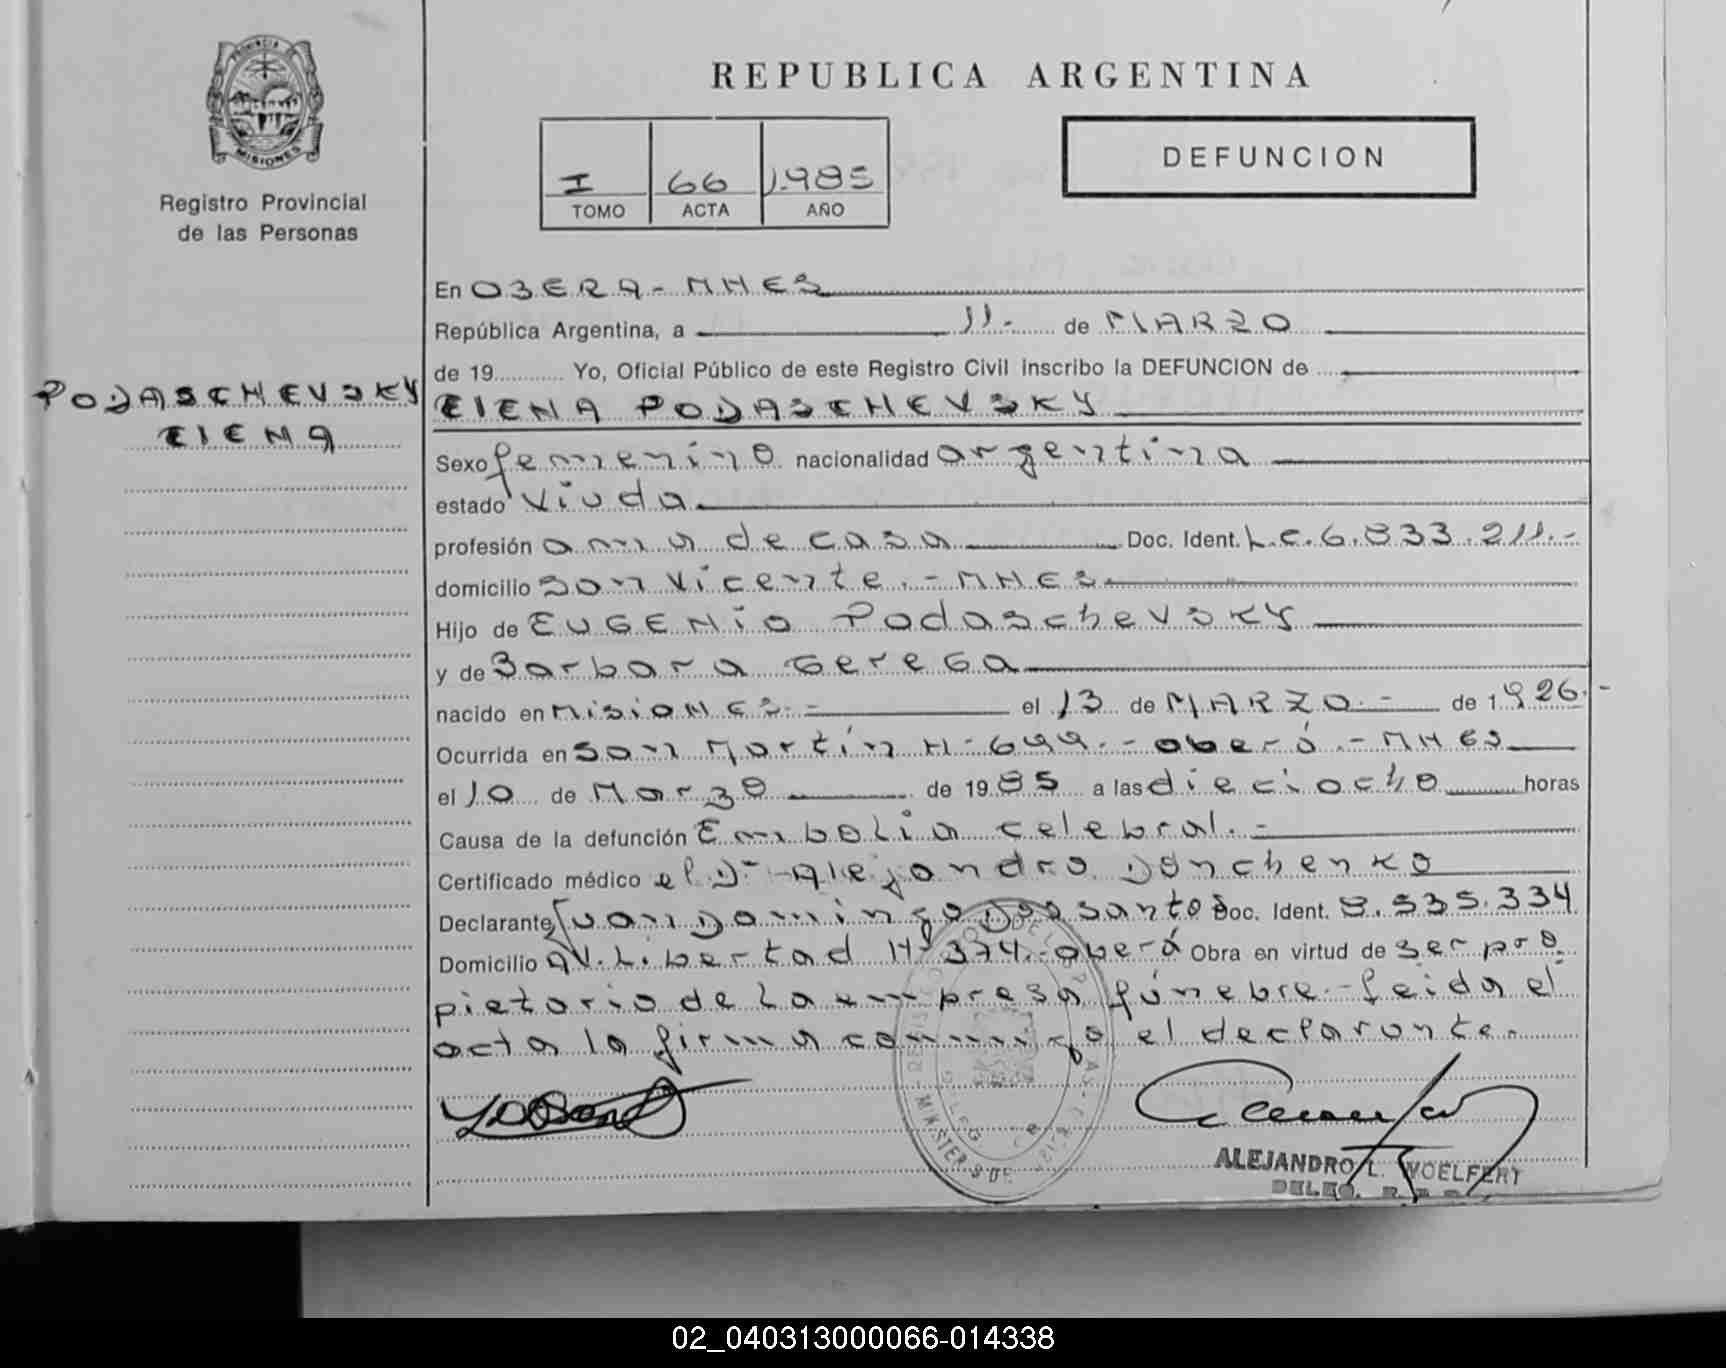 PROVINCIA DE
MISIONES
Registro Provincial
de las Personas
PODASCHEVSKY
ElENA
REPUBLICA ARGENTINA
I 66 1.985
TOMO ACTA AÑO
DEFUNCION
En OBERA - MNES
República Argentina, a 11.- de MARZO
de 19 Yo, Oficial Público de este Registro Civil inscribo la DEFUNCION de
ElENA PODASCHEVSKY
Sexo femenino nacionalidad argentina
estado viuda
profesión ama de casa Doc. Ident. L.C. 6.833.211.-
domicilio San Vicente.- MNES
Hijo de EUGENio Podaschevsky
y de Barbara Gerega
nacido en MisiONES.- el 13 de MARZO.- de 1926.-
Ocurrida en San Martín N- 699.- oberá.- MNES
el 10 de Marzo de 1985 a las dieciocho horas
Causa de la defunción Embolia celebral.-
Certificado médico el Dr Alejandro Donchenko
Declarante Juan Domingo Dos santos Doc. Ident. 8.535.334
Domicilio aV. Libertad Nº 374.- oberá Obra en virtud de ser pro
pietario de la empresa fúnebre.- leida el
acta la firma conmigo el declarante.
ALEJANDRO L. WOELFERT
02_040313000066-014338